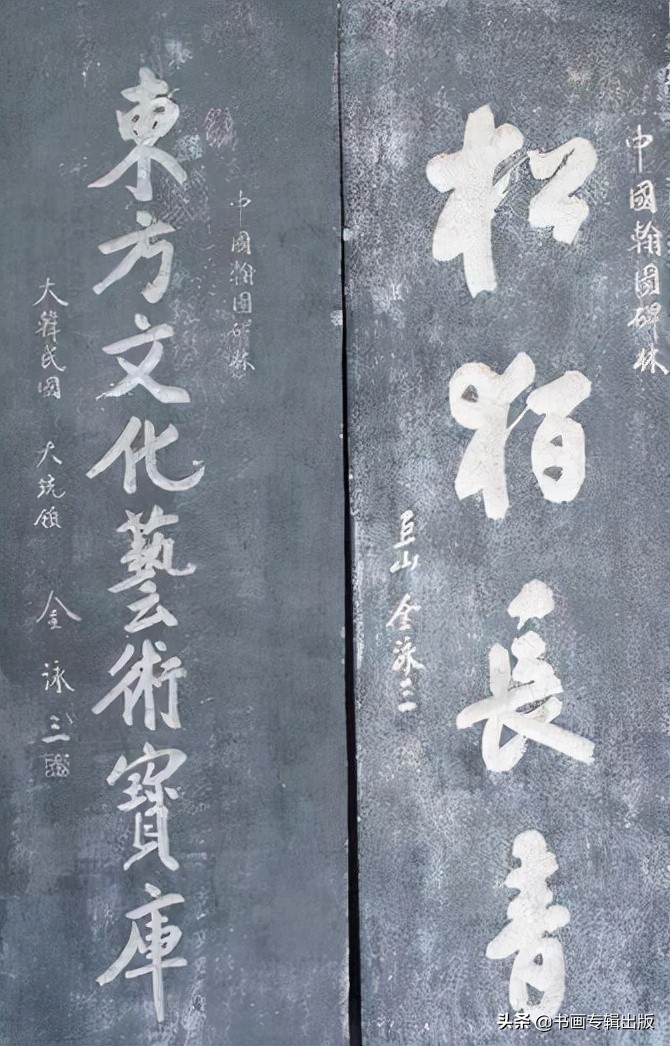 中國翰園碑林
松栢長青
巨山 金泳三
中國翰園碑林
東方文化藝術寶庫
大韓民國 大統領 金泳三
头条 @书画专辑出版